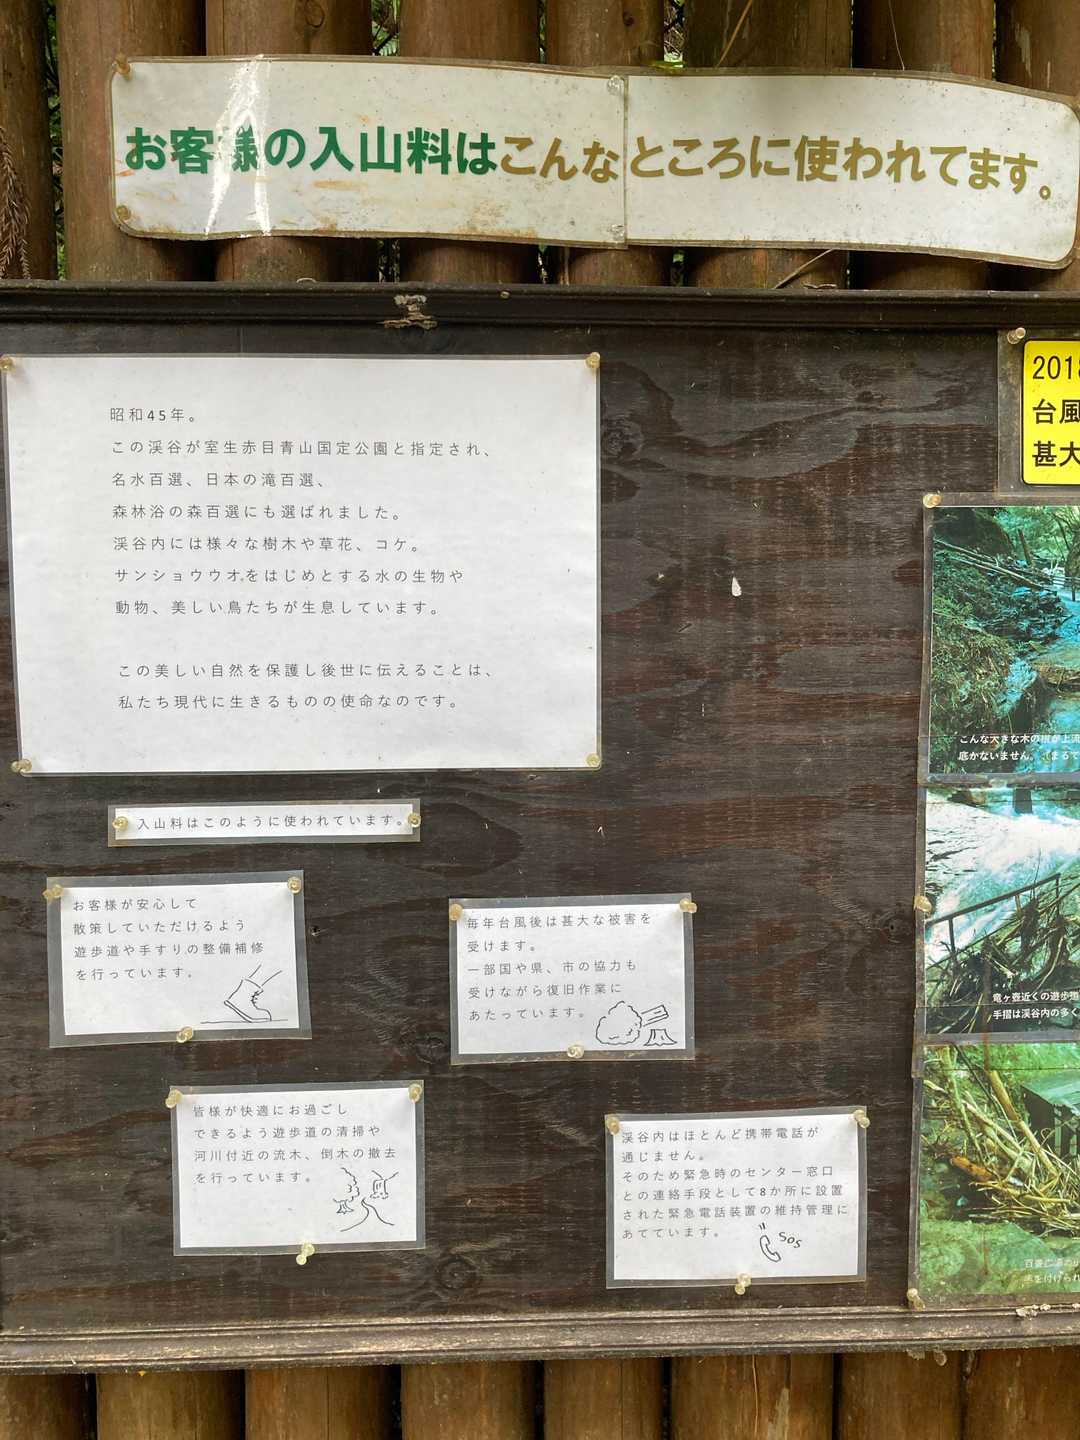 お客様の入山料はこんなところに使われてます。
昭和45年。
この渓谷が室生赤目青山国定公園と指定され、
名水百選、日本の滝百選、
森林浴の森百選にも選ばれました。
渓谷内には様々な樹木や草花、コケ。
サンショウウオをはじめとする水の生物や
動物、美しい鳥たちが生息しています。
この美しい自然を保護し後世に伝えることは、
私たち現代に生きるものの使命なのです。
入山料はこのように使われています。
お客様が安心して
散策していただけるよう
遊歩道や手すりの整備補修
を行っています。
毎年台風後は甚大な被害を
受けます。
一部国や県、市の協力も
受けながら復旧作業に
あたっています。
皆様が快適にお過ごし
できるよう遊歩道の清掃や
河川付近の流木、倒木の撤去
を行っています。
渓谷内はほとんど携帯電話が
通じません。
そのため緊急時のセンター窓口
との連絡手段として8か所に設置
された緊急電話装置の維持管理に
あてています。
SOS
201
台風
甚大
こんな大きな木の根が上流
底かないません。（まるで
竜ヶ壺近くの遊歩道
手摺は渓谷内の多く